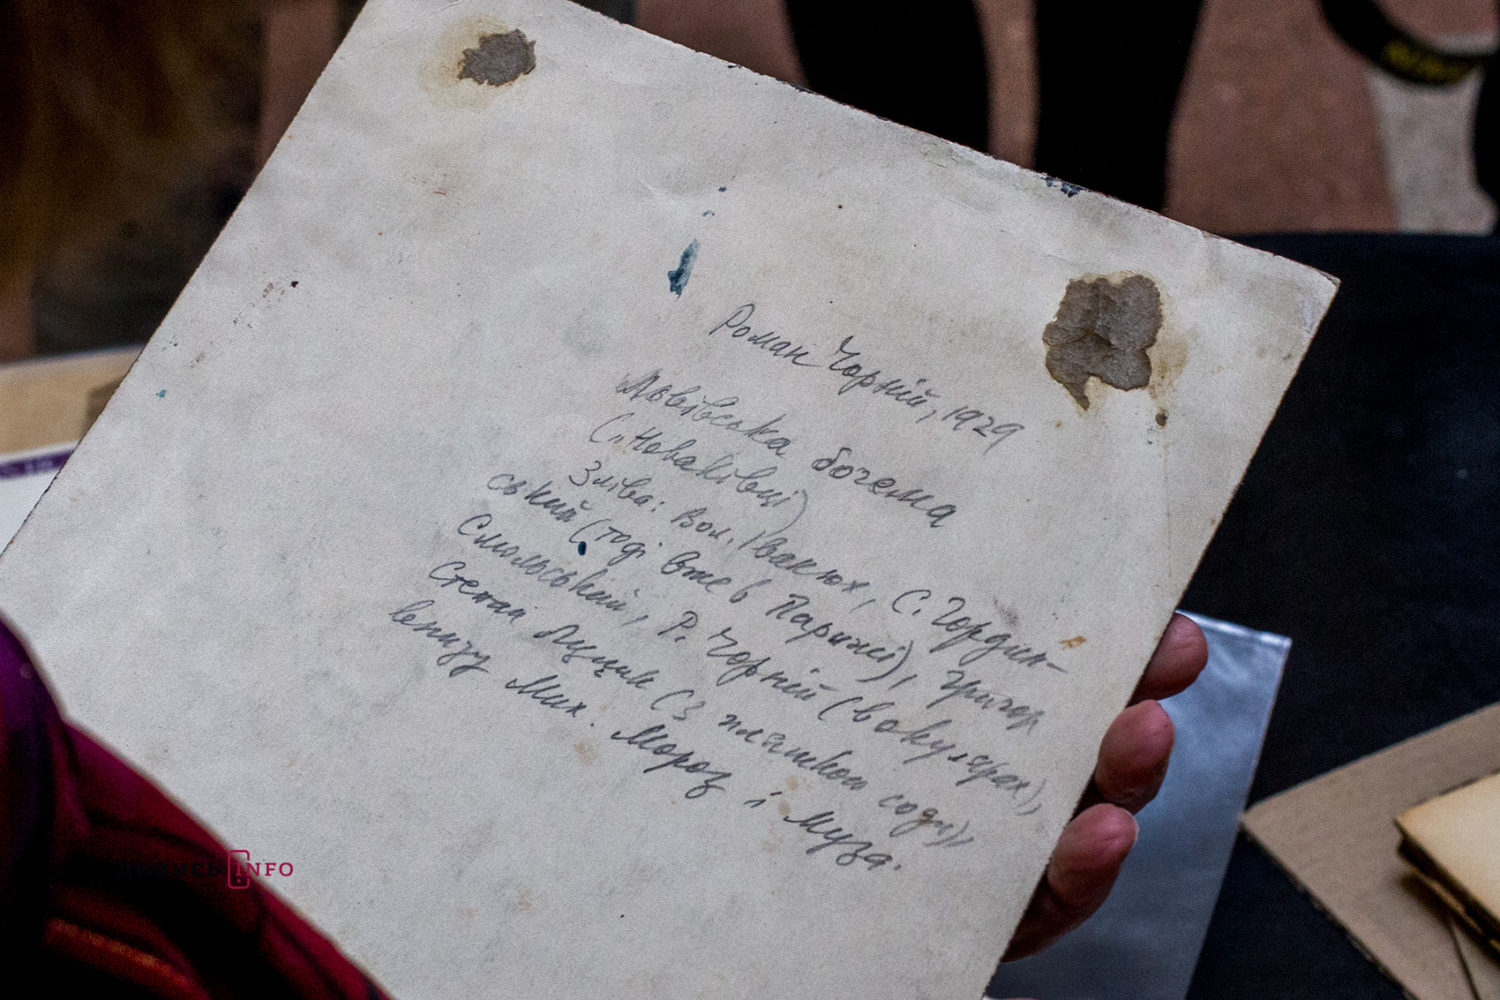 Роман Чорній, 1929
Львівська богема
(п. Новаківці)
Зліва: Вол. Івакюх, С. Гордин-
ський (тоді вже в Парижі), Григор
Смольський, Р. Чорній (в окулярах),
Степан Луцик (з пляшкою соди),
внизу Мих. Мороз і Муза.
ДИВИСЬ.INFO